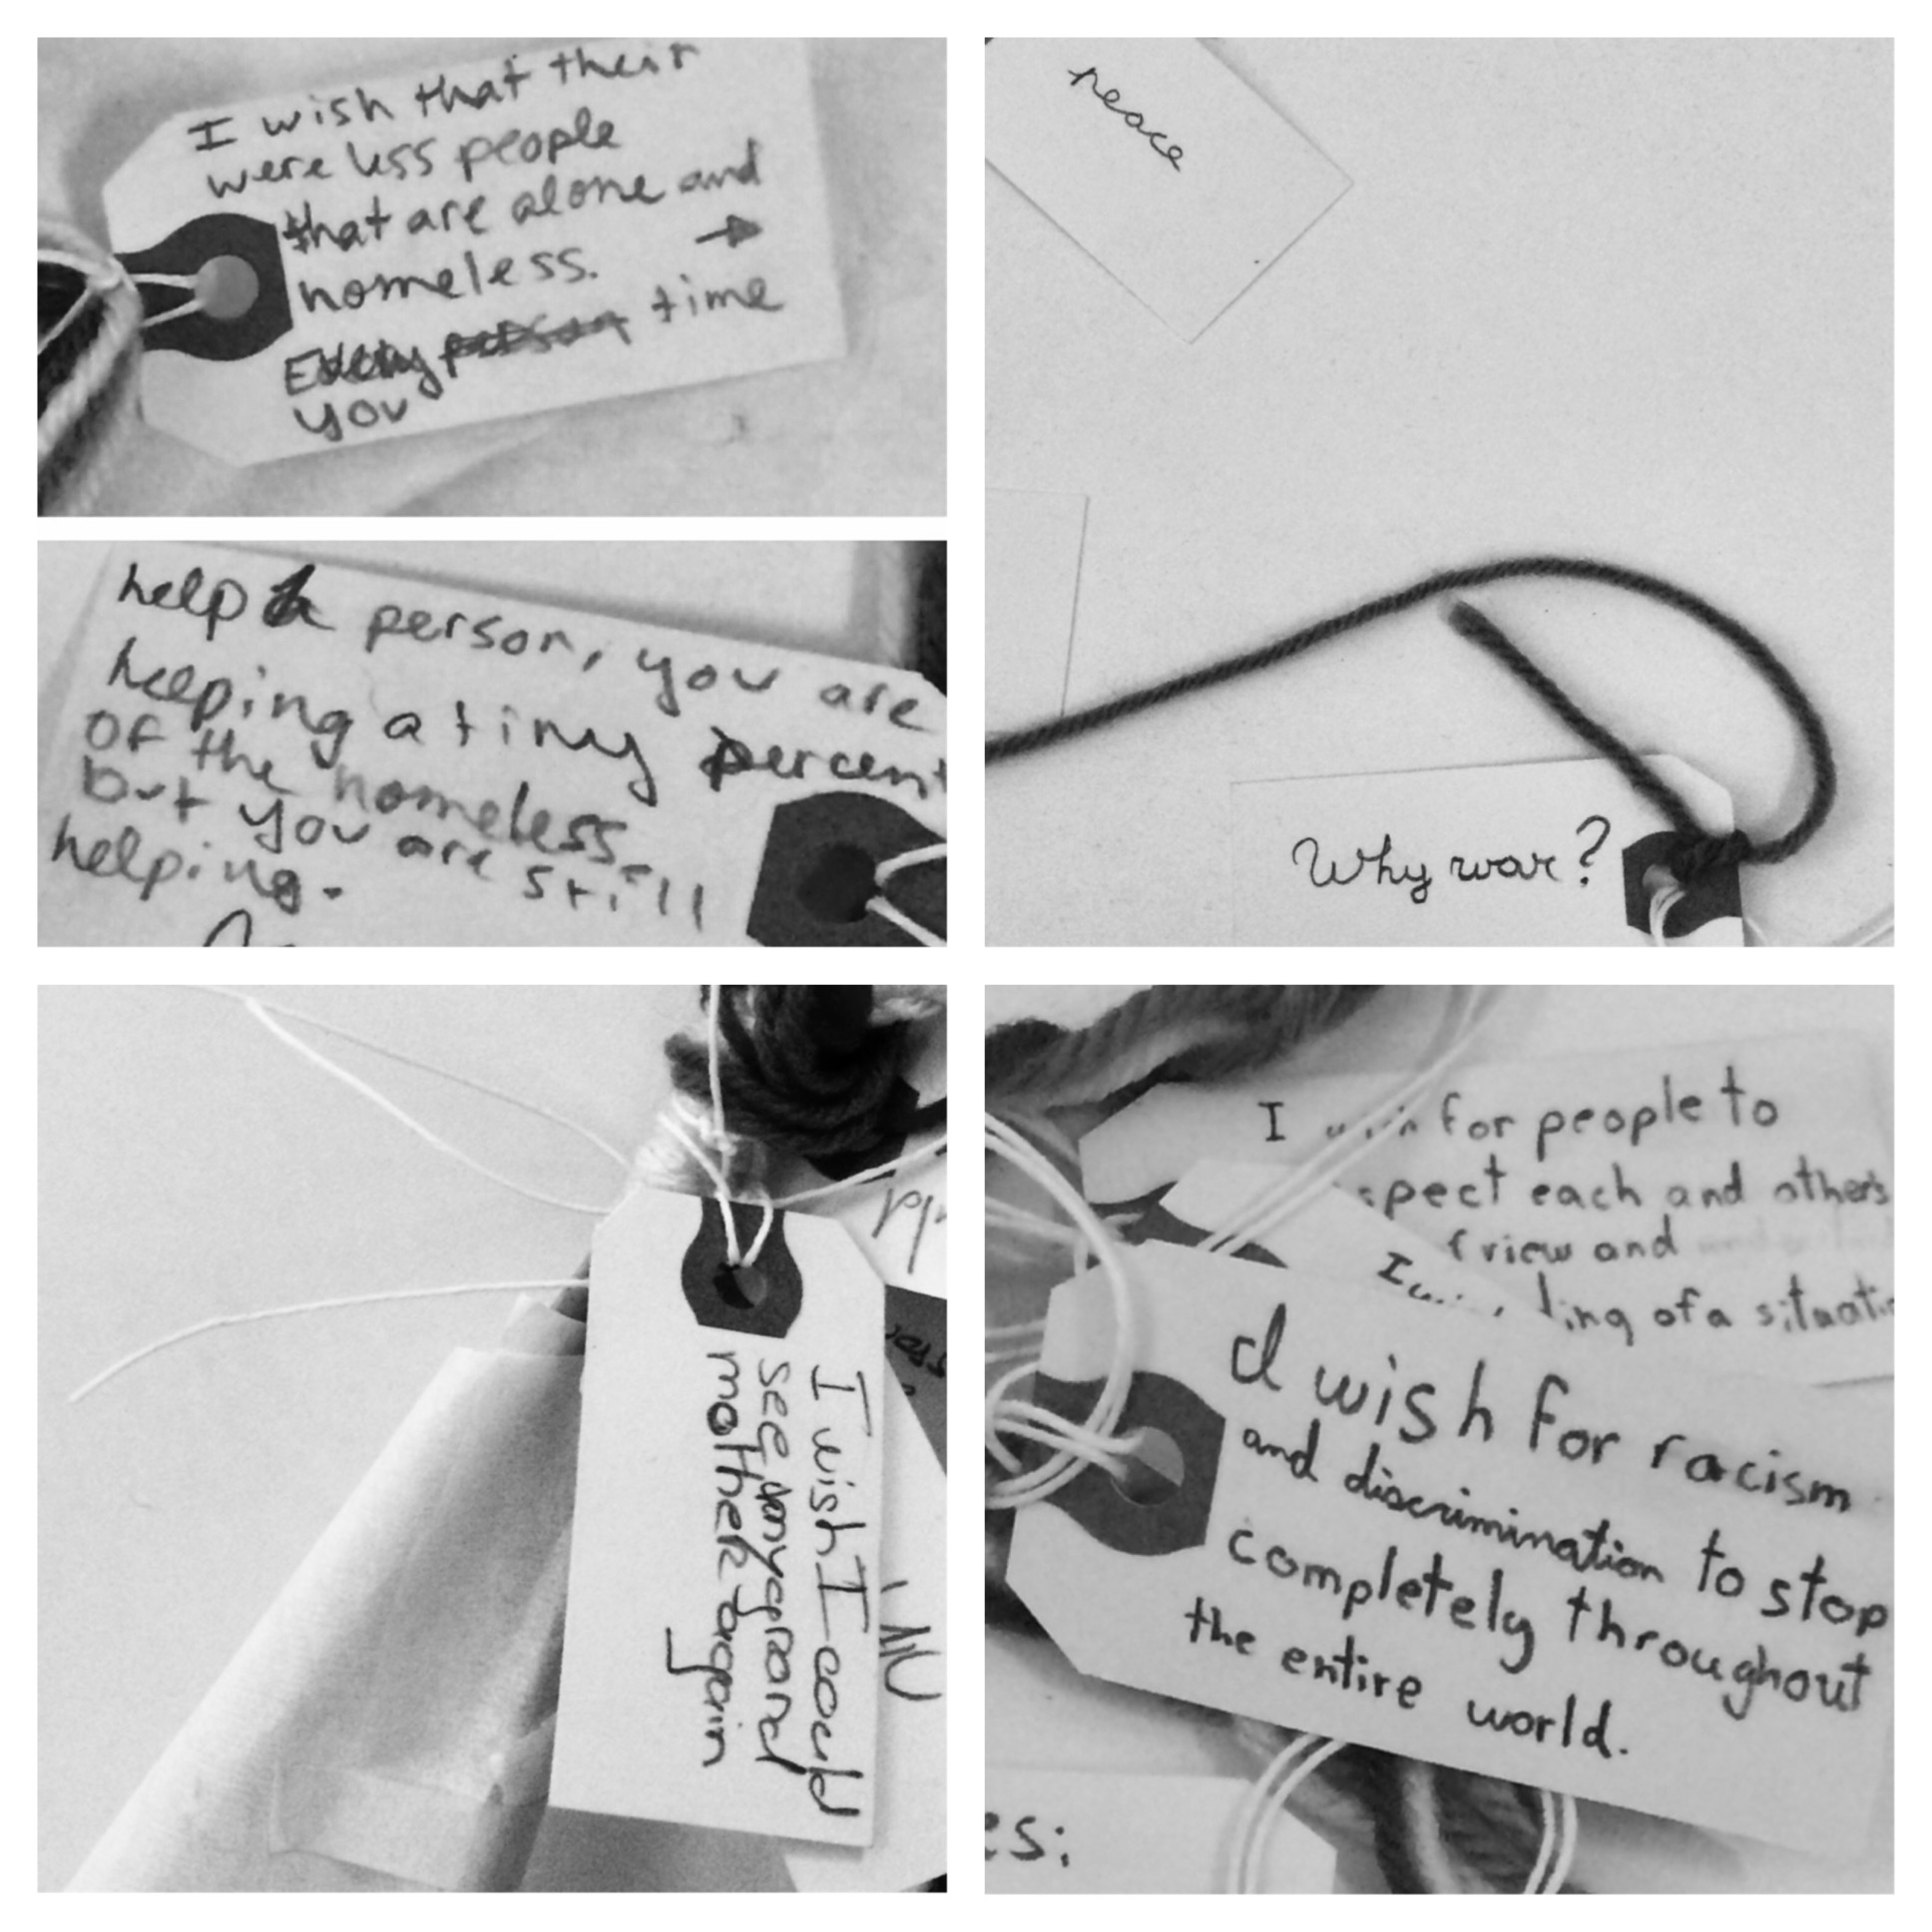 I wish that their
were less people
that are alone and
homeless. →
Every time
you
help a person, you are
helping a tiny percent
of the homeless.
but you are still
helping.
peace
Why war?
I wish I could
see my grand
mother again
I wish for people to
spect each and others
view and
ing of a situatio
I
I wish for racism
and discrimination to stop
completely throughout
the entire world.
es: